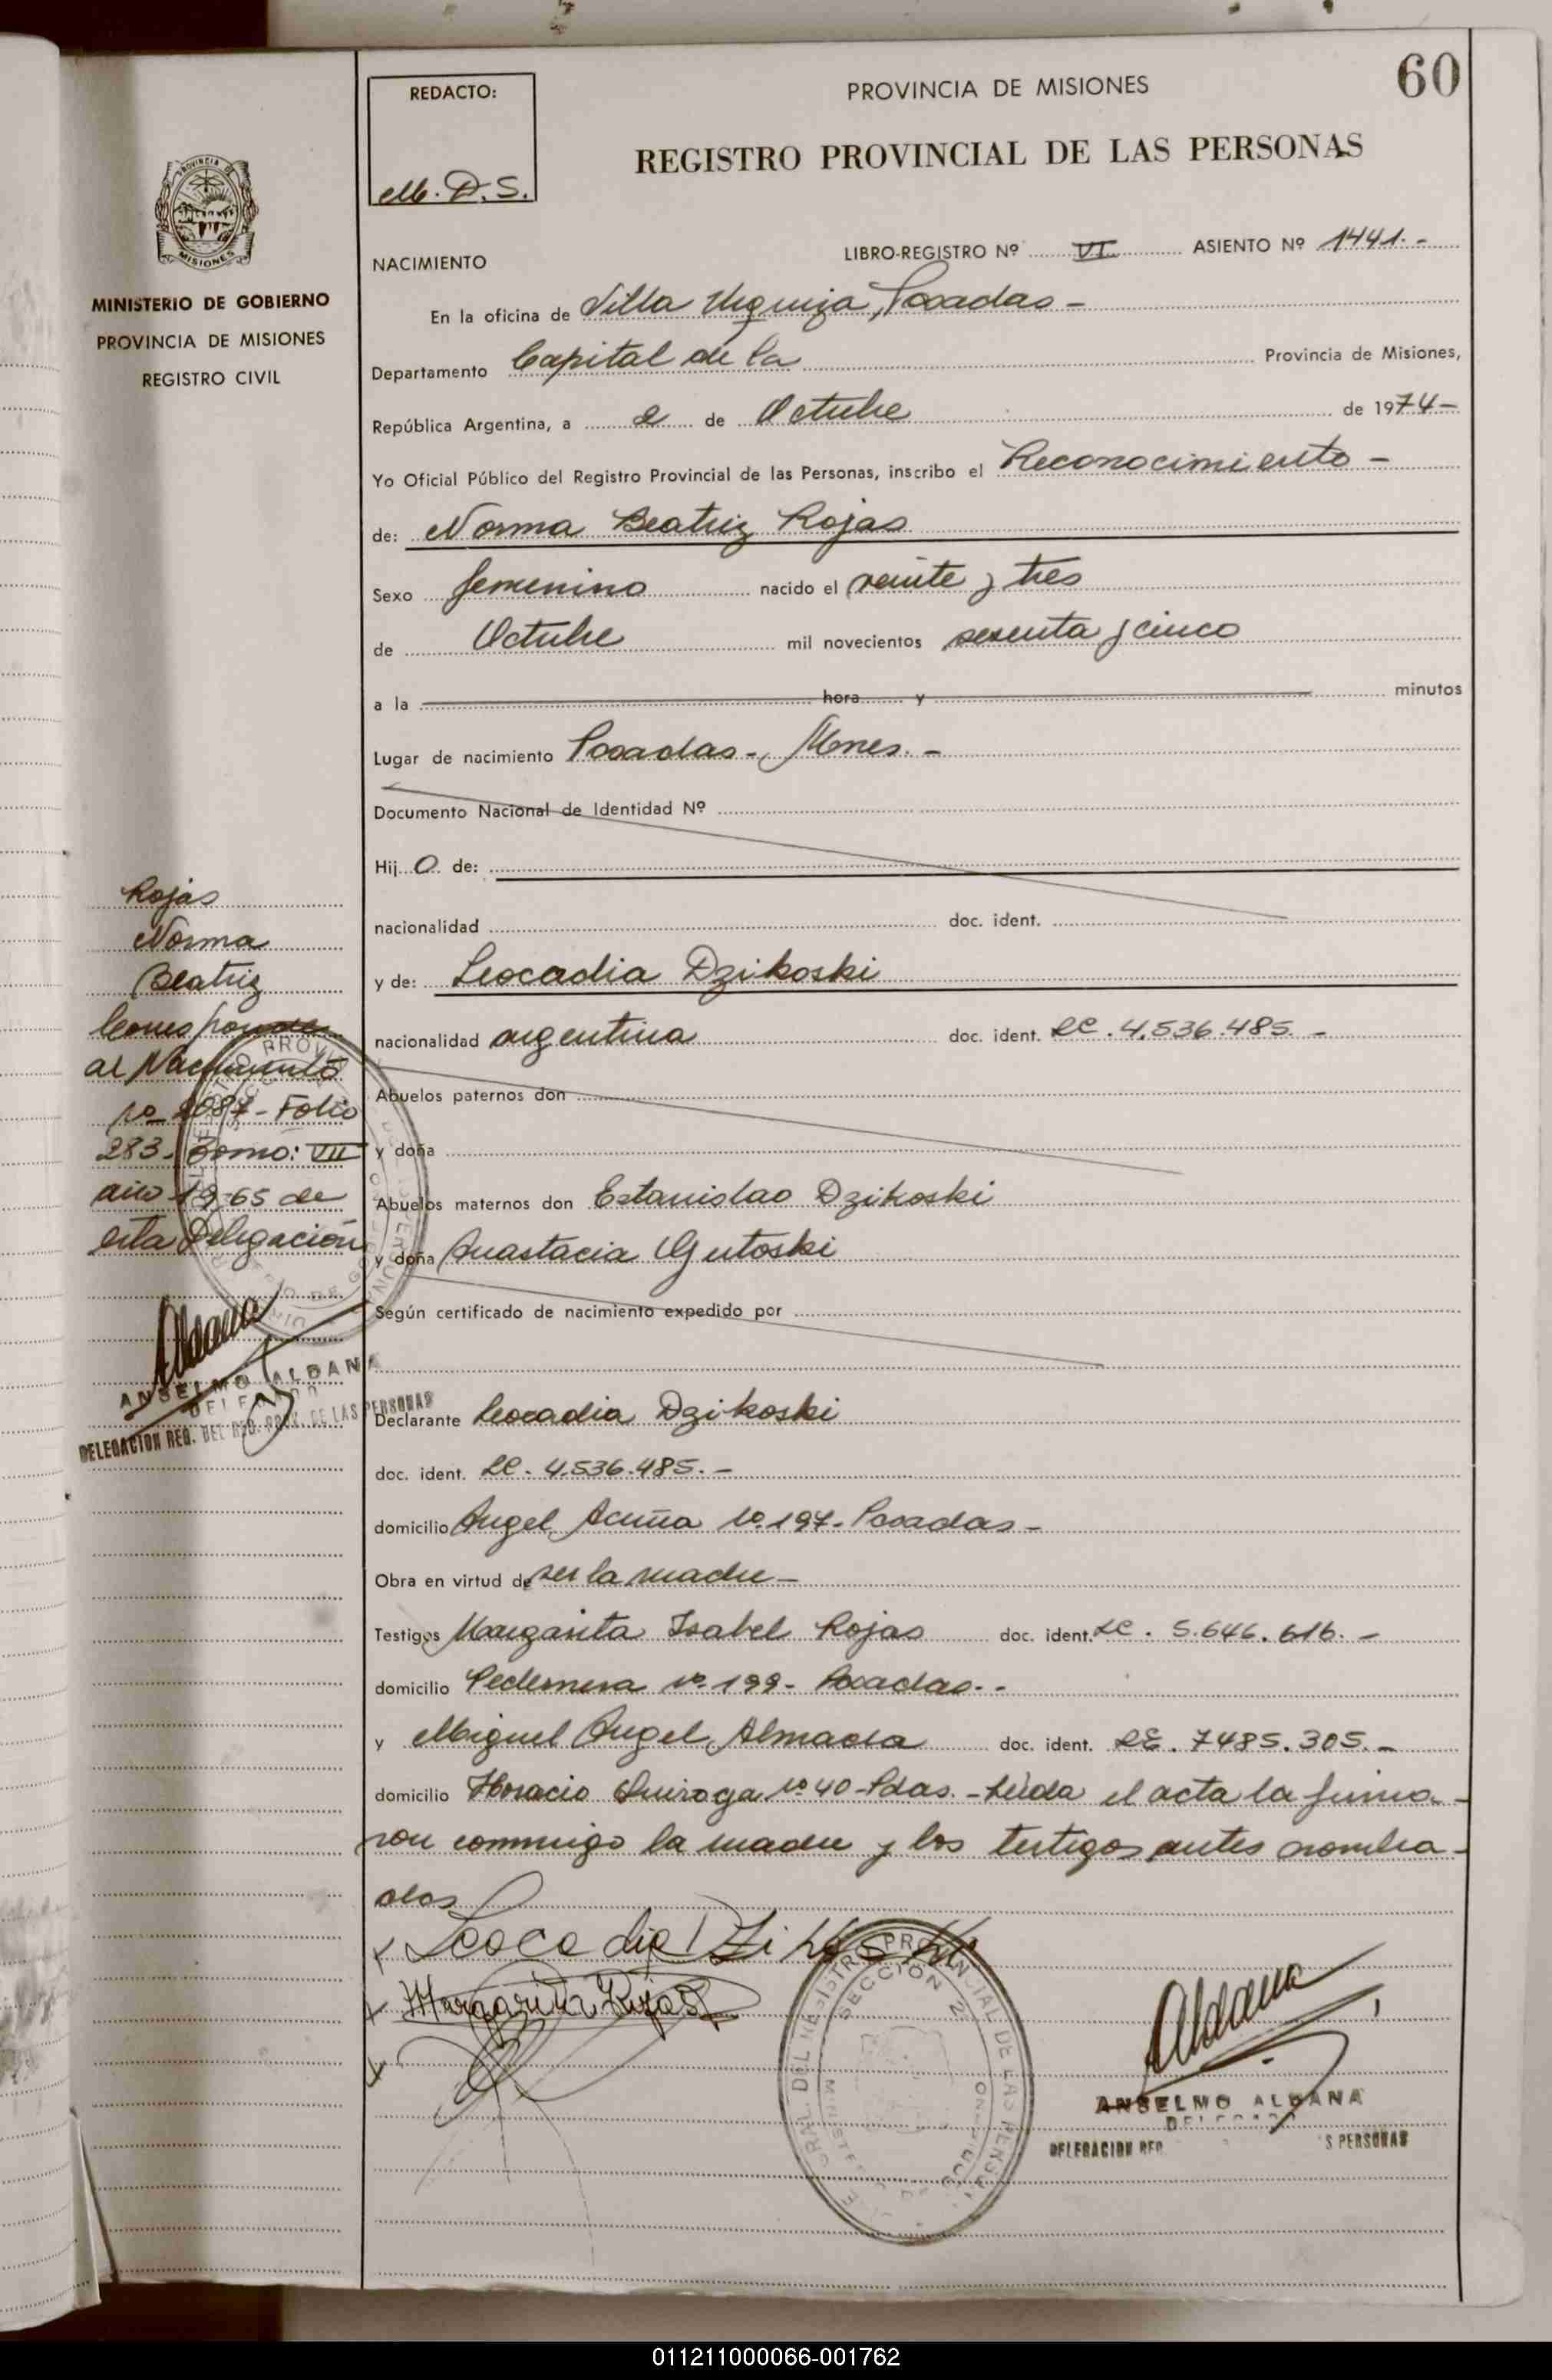 60
REDACTO:
M. D. S.
PROVINCIA DE MISIONES
REGISTRO PROVINCIAL DE LAS PERSONAS
PROVINCIA DE
MISIONES
MINISTERIO DE GOBIERNO
PROVINCIA DE MISIONES
REGISTRO CIVIL
NACIMIENTO
LIBRO-REGISTRO Nº VI ASIENTO Nº 1441.-
En la oficina de Villa Urquiza, Posadas -
Departamento Capital de la Provincia de Misiones,
República Argentina, a 2 de Octubre de 1974-
Yo Oficial Público del Registro Provincial de las Personas, inscribo el Reconocimiento -
de: Norma Beatriz Rojas
Sexo femenino nacido el veinte y tres
de Octubre mil novecientos sesenta y cinco
a la hora y minutos
Lugar de nacimiento Posadas - Mnes. -
Documento Nacional de Identidad Nº
Hij o de:
nacionalidad doc. ident.
y de: Leocadia Dzikoski
nacionalidad argentina doc. ident. LC. 4.536.485. -
Abuelos paternos don
y doña
Abuelos maternos don Estanislao Dzikoski
y doña Anastacia Gutoski
Según certificado de nacimiento expedido por
Declarante Leocadia Dzikoski
doc. ident. LC. 4.536.485. -
domicilio Angel Acuña nº 197- Posadas -
Obra en virtud de ser la madre -
Testigos Margarita Isabel Rojas doc. ident. LC. 5.646.616. -
domicilio Pedernera nº 199- Posadas. -
y Miguel Angel Almada doc. ident. LE. 7485.305. -
domicilio Horacio Quiroga nº 40-Pdas. - Leída el acta la firma-
ron conmigo la madre y los testigos antes nombra-
dos
Leocadia Dzikoski
Margarita Rojas
Aldana
ANSELMO ALDANA
DELEGADO
DELEGACION REG. S PERSONAS
SECCION 2
Rojas
Norma
Beatriz
Corresponde
al Nacimiento
nº 2087- Folio
283- Tomo: VII
año 1965 de
esta Delegación
Aldana
ANSELMO ALDANA
DELEGADO
DELEGACION REG. DEL REG. PROV. DE LAS PERSONAS
011211000066-001762